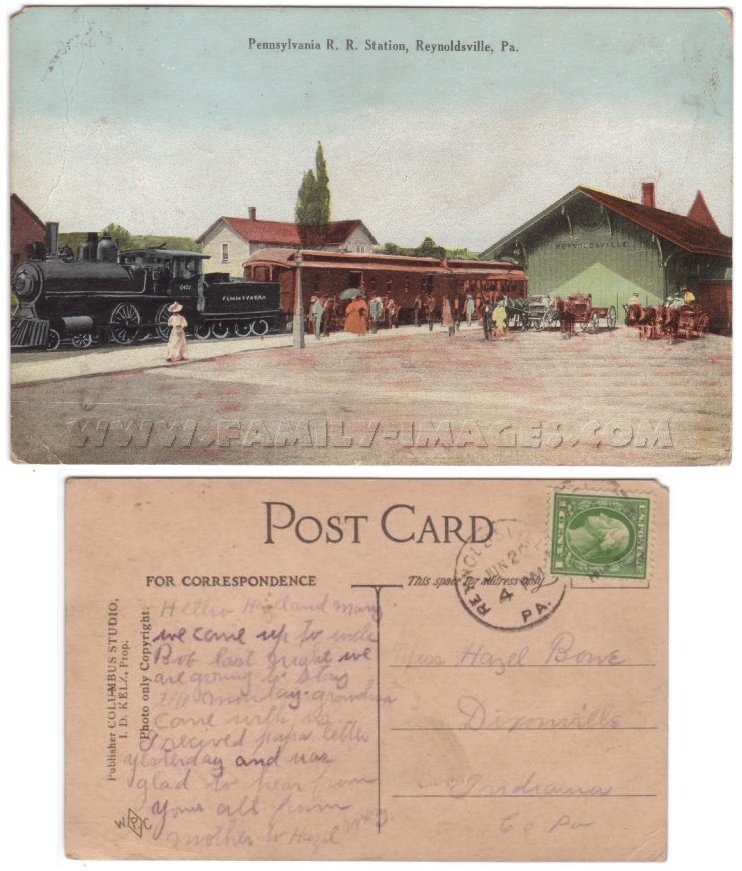 Pennsylvania R. R. Station, Reynoldsville, Pa.
PENNSYLVANIA
REYNOLDSVILLE
WWW.FAMILY-IMAGES.COM
POST CARD
FOR CORRESPONDENCE
This space for address only
REYNOLDSVILLE
JUN 20
4 PM
PA.
Publisher COLUMBUS STUDIO,
I. D. KELZ, Prop.
Photo only Copyright.
Hello Hazel and Mary
we came up to uncle
Bob last night we
are going to stay
till monday grandma
came with us
I recived papa letter
yesterday and was
glad to hear from
you all from
mother to Hazel
Miss Hazel Bowe
Dixonville
Indiana
Co Pa
W C